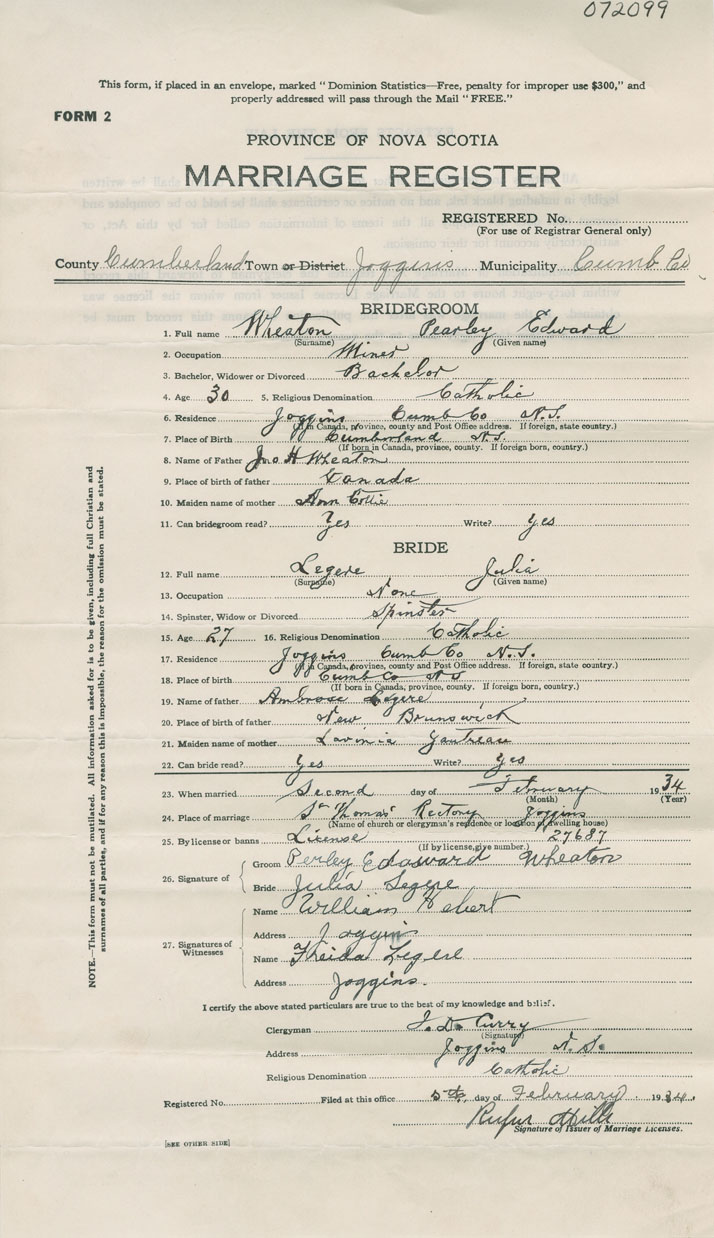 072099
This form, if placed in an envelope, marked "Dominion Statistics—Free, penalty for improper use $300," and
properly addressed will pass through the Mail "FREE."
FORM 2
PROVINCE OF NOVA SCOTIA
MARRIAGE REGISTER
REGISTERED No.
(For use of Registrar General only)
County Cumberland Town or District Joggins Municipality Cumb Co
BRIDEGROOM
1. Full name Wheaton Pearley Edward
(Surname) (Given name)
2. Occupation Miner
3. Bachelor, Widower or Divorced Bachelor
4. Age 30 5. Religious Denomination Catholic
6. Residence Joggins Cumb Co N.S.
(If in Canada, province, county and Post Office address. If foreign, state country.)
7. Place of Birth Cumberland N.S.
(If born in Canada, province, county. If foreign born, country.)
8. Name of Father Jno H Wheaton
9. Place of birth of father Canada
10. Maiden name of mother Ann
11. Can bridegroom read? Yes Write? Yes
BRIDE
12. Full name Legere Julia
(Surname) (Given name)
13. Occupation None
14. Spinster, Widow or Divorced Spinster
15. Age 27 16. Religious Denomination Catholic
17. Residence Joggins Cumb Co N.S.
(If in Canada, province, county and Post Office address. If foreign, state country.)
18. Place of birth Cumb Co N S
(If born in Canada, province, county. If foreign born, country.)
19. Name of father Ambrose Legere
20. Place of birth of father New Brunswick
21. Maiden name of mother Lavinia Gautreau
22. Can bride read? Yes Write? Yes
23. When married Second day of February 1934
(Month) (Year)
24. Place of marriage St Thomas' Rectory Joggins
(Name of church or clergyman's residence or location of dwelling house)
25. By license or banns License 27687
(If by license, give number.)
26. Signature of
Groom Perley Edaward Wheaton
Bride Julia Legere
27. Signatures of Witnesses
Name William Hebert
Address Joggins
Name Freida Legere
Address Joggins.
I certify the above stated particulars are true to the best of my knowledge and belief.
Clergyman J. D. Curry
(Signature)
Address Joggins N. S.
Religious Denomination Catholic
Registered No. Filed at this office 5th day of February 1934.
Rufus Hills
Signature of Issuer of Marriage Licenses.
[SEE OTHER SIDE]
NOTE.—This form must not be mutilated. All information asked for is to be given, including full Christian and
surnames of all parties, and if for any reason this is impossible, the reason for the omission must be stated.